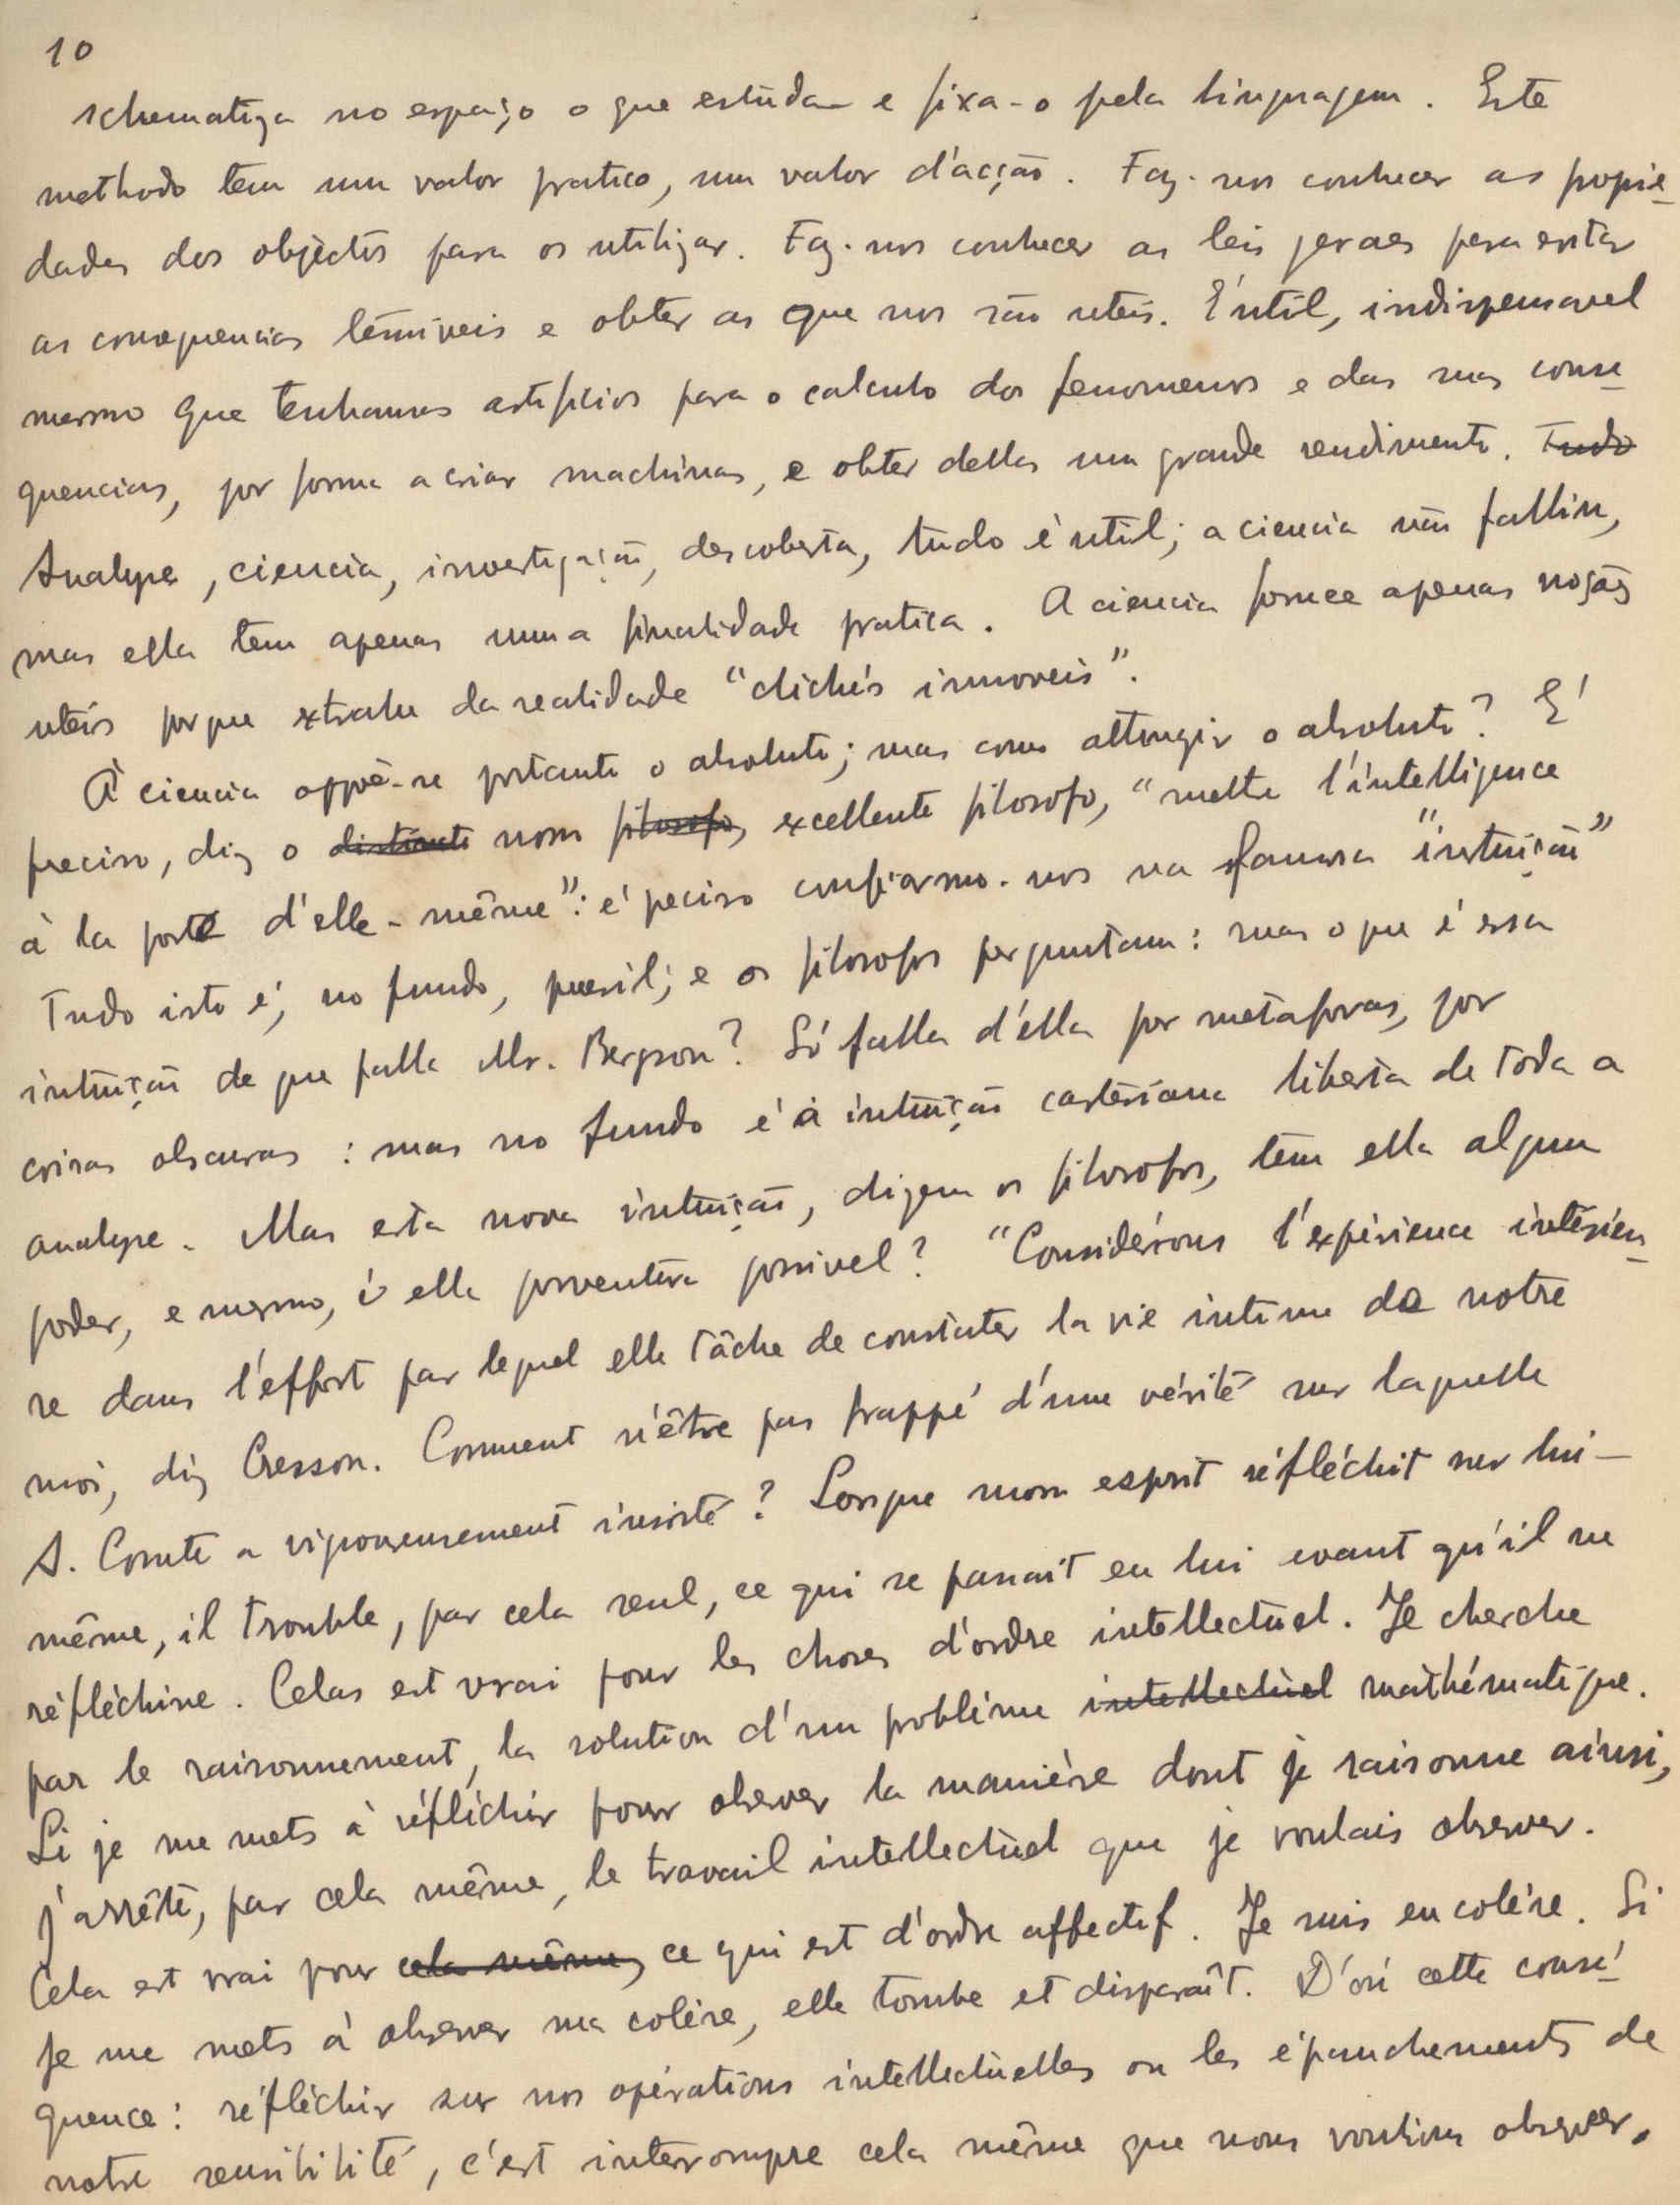 10
schematiza no espaço o que estuda e fixa-o pela linguagem. Este
methodo tem um valor pratico, um valor d'acção. Faz-nos conhecer as proprie-
dades dos objectos para os utilizar. Faz-nos conhecer as leis geraes para evitar
as consequencias temiveis e obter as que nos são uteis. E' util, indispensavel
mesmo que tenhamos artificios para o calculo dos fenomenos e das suas conse-
quencias, por forma a criar machinas, e obter dellas um grande rendimento. Tudo
Analyse, ciencia, investigação, descoberta, tudo é util; a ciencia não falliu,
mas ella tem apenas uma finalidade pratica. A ciencia fornece apenas noções
uteis porque extrahe da realidade "clichés immoveis".
À ciencia oppõe-se portanto o absoluto; mas como attingir o absoluto? E'
preciso, diz o distincto nosso filosofo, excellente filosofo, "mettre l'intelligence
à la porte d'elle-même": é preciso confiarmo-nos na famosa "intuição"
Tudo isto é, no fundo, pueril; e os filosofos perguntam: mas o que é essa
intuição de que falla Mr. Bergson? Só falla d'ella por metaforas, por
coisas obscuras: mas no fundo é a intuição cartesiana liberta de toda a
analyse. Mas esta nova intuição, dizem os filosofos, tem ella algum
poder, e mesmo, é ella porventura possivel? "Considérons l'expérience intérieu-
re dans l'effort par lequel elle tâche de constater la vie intime de notre
moi, diz Cresson. Comment n'être pas frappé d'une vérité sur laquelle
A. Comte a vigoureusement insisté? Lorsque mon esprit réfléchit sur lui-
même, il trouble, par cela seul, ce qui se passait en lui avant qu'il ne
réfléchisse. Celas est vrai pour les choses d'ordre intellectuel. Je cherche
par le raisonnement, la solution d'un problème intellectuel mathématique.
Si je me mets à réfléchir pour observer la manière dont je raisonne ainsi,
j'arrête, par cela même, le travail intellectuel que je voulais observer.
Cela est vrai pour cela même, ce qui est d'ordre affectif. Je suis en colère. Si
je me mets à observer ma colère, elle tombe et disparaît. D'où cette consé-
quence: réfléchir sur nos opérations intellectuelles ou les épanchements de
notre sensibilité, c'est interrompre cela même que nous voulions observer.